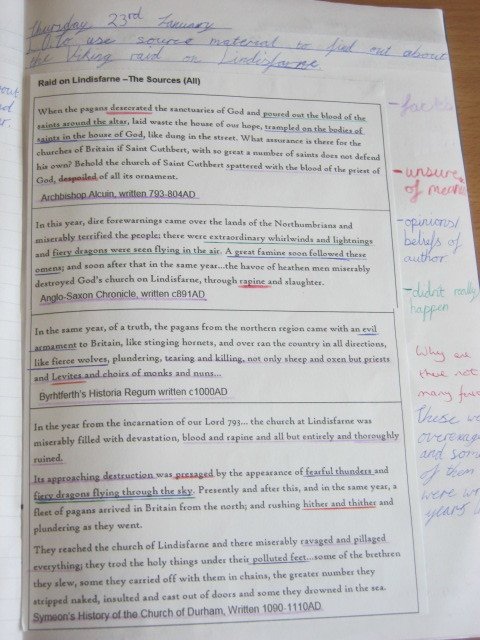 Thursday 23rd January
LO: to use source material to find out about
the Viking raid on Lindisfarne.
Raid on Lindisfarne –The Sources (All)
When the pagans desecrated the sanctuaries of God and poured out the blood of the
saints around the altar, laid waste the house of our hope, trampled on the bodies of
saints in the house of God, like dung in the street. What assurance is there for the
churches of Britain if Saint Cuthbert, with so great a number of saints does not defend
his own? Behold the church of Saint Cuthbert spattered with the blood of the priest of
God, despoiled of all its ornament.
Archbishop Alcuin, written 793-804AD
In this year, dire forewarnings came over the lands of the Northumbrians and
miserably terrified the people; there were extraordinary whirlwinds and lightnings
and fiery dragons were seen flying in the air. A great famine soon followed these
omens; and soon after that in the same year...the havoc of heathen men miserably
destroyed God's church on Lindisfarne, through rapine and slaughter.
Anglo-Saxon Chronicle, written c891AD
In the same year, of a truth, the pagans from the northern region came with an evil
armament to Britain, like stinging hornets, and over ran the country in all directions,
like fierce wolves, plundering, tearing and killing, not only sheep and oxen but priests
and Levites and choirs of monks and nuns...
Byrhtferth's Historia Regum written c1000AD
In the year from the incarnation of our Lord 793... the church at Lindisfarne was
miserably filled with devastation, blood and rapine and all but entirely and thoroughly
ruined.
Its approaching destruction was presaged by the appearance of fearful thunders and
fiery dragons flying through the sky. Presently and after this, and in the same year, a
fleet of pagans arrived in Britain from the north; and rushing hither and thither and
plundering as they went.
They reached the church of Lindisfarne and there miserably ravaged and pillaged
everything; they trod the holy things under their polluted feet...some of the brethren
they slew, some they carried off with them in chains, the greater number they
stripped naked, insulted and cast out of doors and some they drowned in the sea.
Symeon's History of the Church of Durham, Written 1090-1110AD
- facts
- unsure
of
- opinions/
beliefs of
author
- didn't really
happen
Why are
there not
many
These
and some
of them
were
years